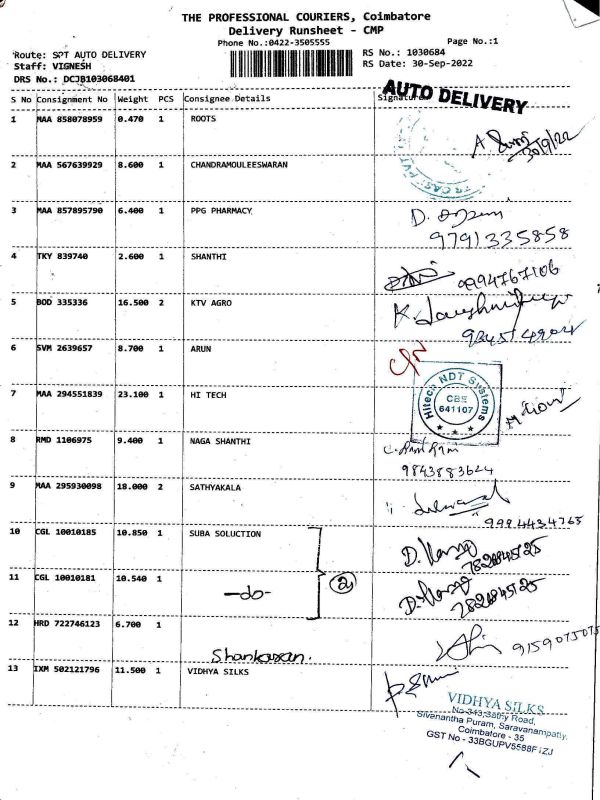 THE PROFESSIONAL COURIERS, Coimbatore
Delivery Runsheet - CMP
Phone No.:0422-3505555
Page No.:1
Route: SPT AUTO DELIVERY
Staff: VIGNESH
DRS No.: DCJB103068401
RS No.: 1030684
RS Date: 30-Sep-2022
S No Consignment No Weight PCS Consignee Details Signature
AUTO DELIVERY
1 MAA 858078959 0.470 1 ROOTS
30/9/22
2 MAA 567639929 8.600 1 CHANDRAMOULEESWARAN
3 MAA 857895790 6.400 1 PPG PHARMACY
9791335858
4 TKY 839740 2.600 1 SHANTHI
9994767106
5 BOD 335336 16.500 2 KTV AGRO
6 SVM 2639657 8.700 1 ARUN
7 MAA 294551839 23.100 1 HI TECH
Hitech NDT Systems
CBE
641107
8 RMD 1106975 9.400 1 NAGA SHANTHI
9843883624
9 MAA 295930098 18.000 2 SATHYAKALA
9994434765
10 CGL 10010185 10.850 1 SUBA SOLUCTION
11 CGL 10010181 10.540 1 -do- 2
12 HRD 722746123 6.700 1
Shankaran.
13 IXM 502121796 11.500 1 VIDHYA SILKS
VIDHYA SILKS
Road,
Sivanantha Puram, Saravanampatty,
Coimbatore - 35
GST No - 33BGUPV5588F1ZJ